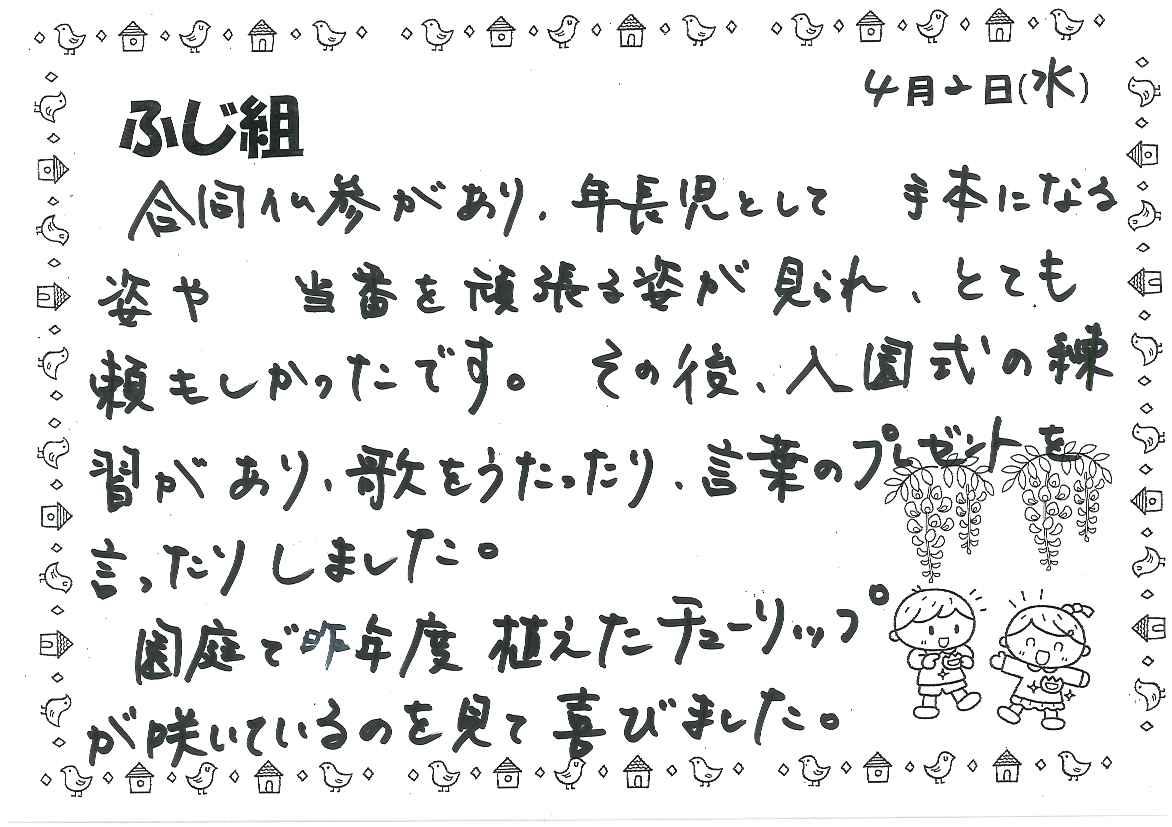 4月2日(水)
ふじ組
合同仏参があり、年長児として 手本になる
姿や 当番を頑張る姿が見られ、とても
頼もしかったです。 その後、入園式の練
習があり、歌をうたったり、言葉のプレゼントを
言ったりしました。
園庭で昨年度植えたチューリップ
が咲いているのを見て喜びました。